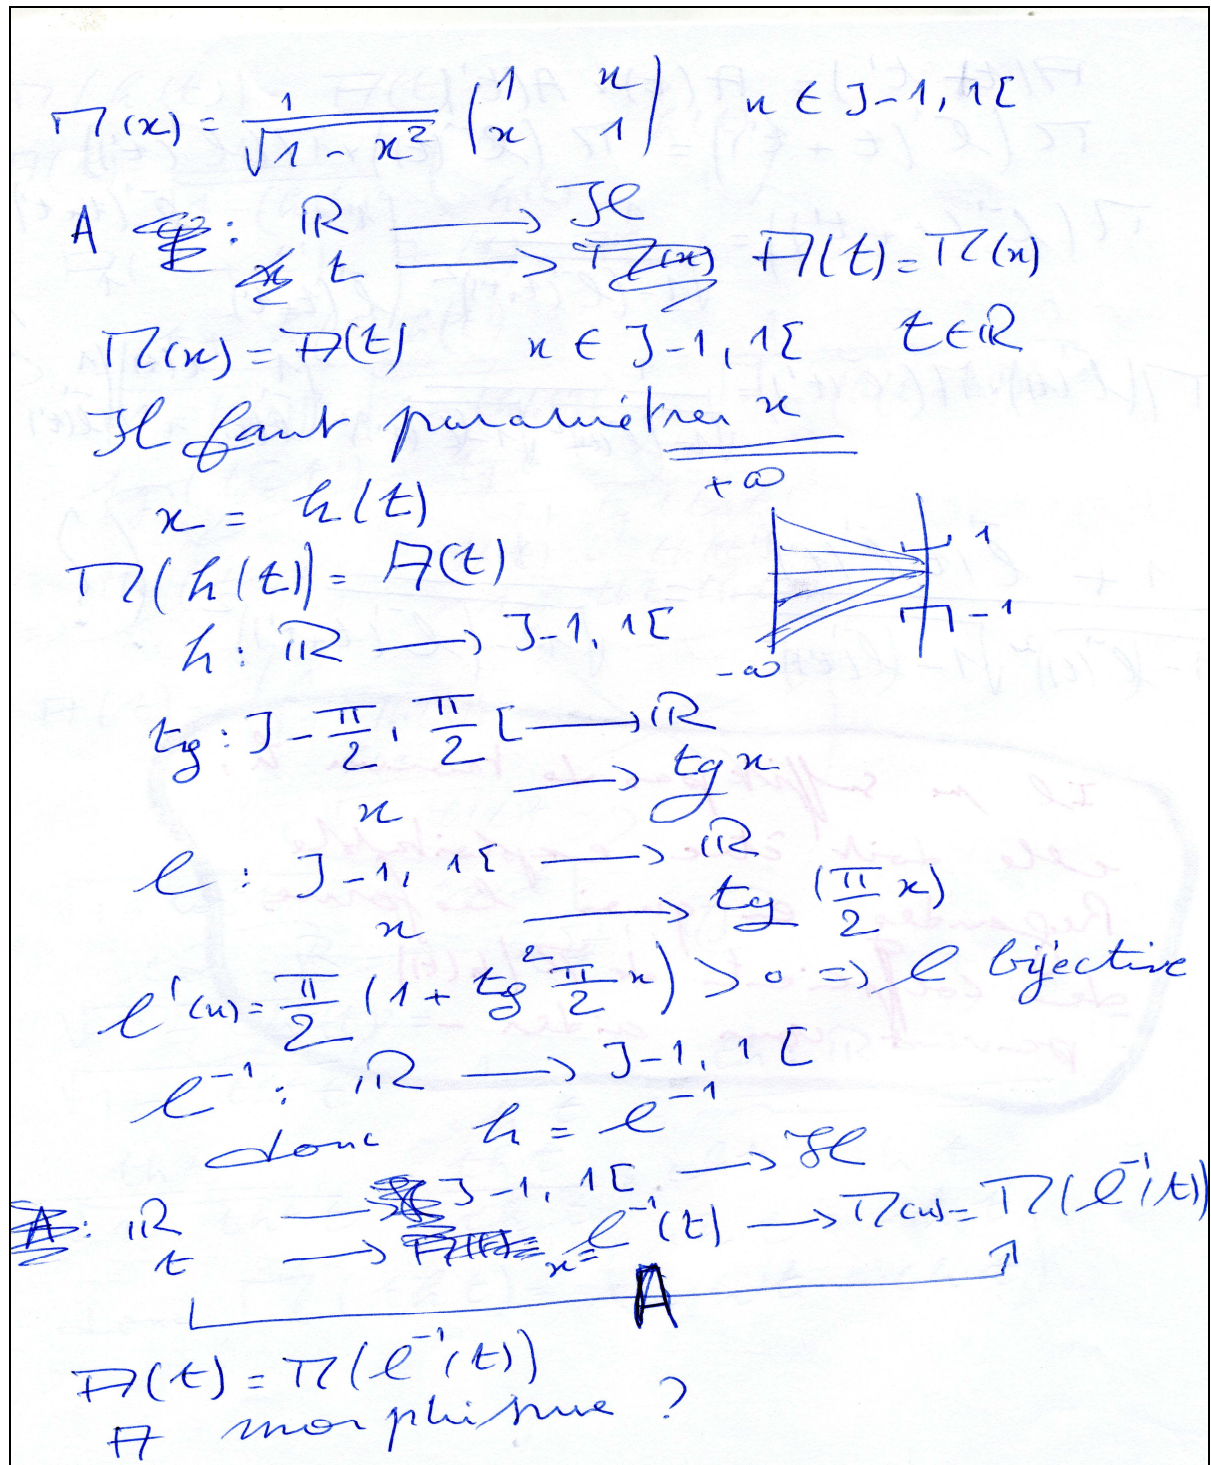 M(x) = 1/√(1 - x²) (1 x / x 1) x ∈ ]-1, 1[
A : ℝ → H
t → A(t) = M(x)
M(x) = A(t) x ∈ ]-1, 1[ t ∈ ℝ
Il faut paramétrer x
x = h(t)
+∞
M(h(t)) = A(t)
1
-1
-∞
h : ℝ → ]-1, 1[
tg : ]-π/2, π/2[ → ℝ
x → tg x
l : ]-1, 1[ → ℝ
x → tg (π/2 x)
l'(x) = π/2 (1 + tg² π/2 x) > 0 => l bijective
l⁻¹ : ℝ → ]-1, 1[
donc h = l⁻¹
ℝ → ]-1, 1[ → H
t → x = l⁻¹(t) → M(x) = M(l⁻¹(t))
A
A(t) = M(l⁻¹(t))
A morphisme ?